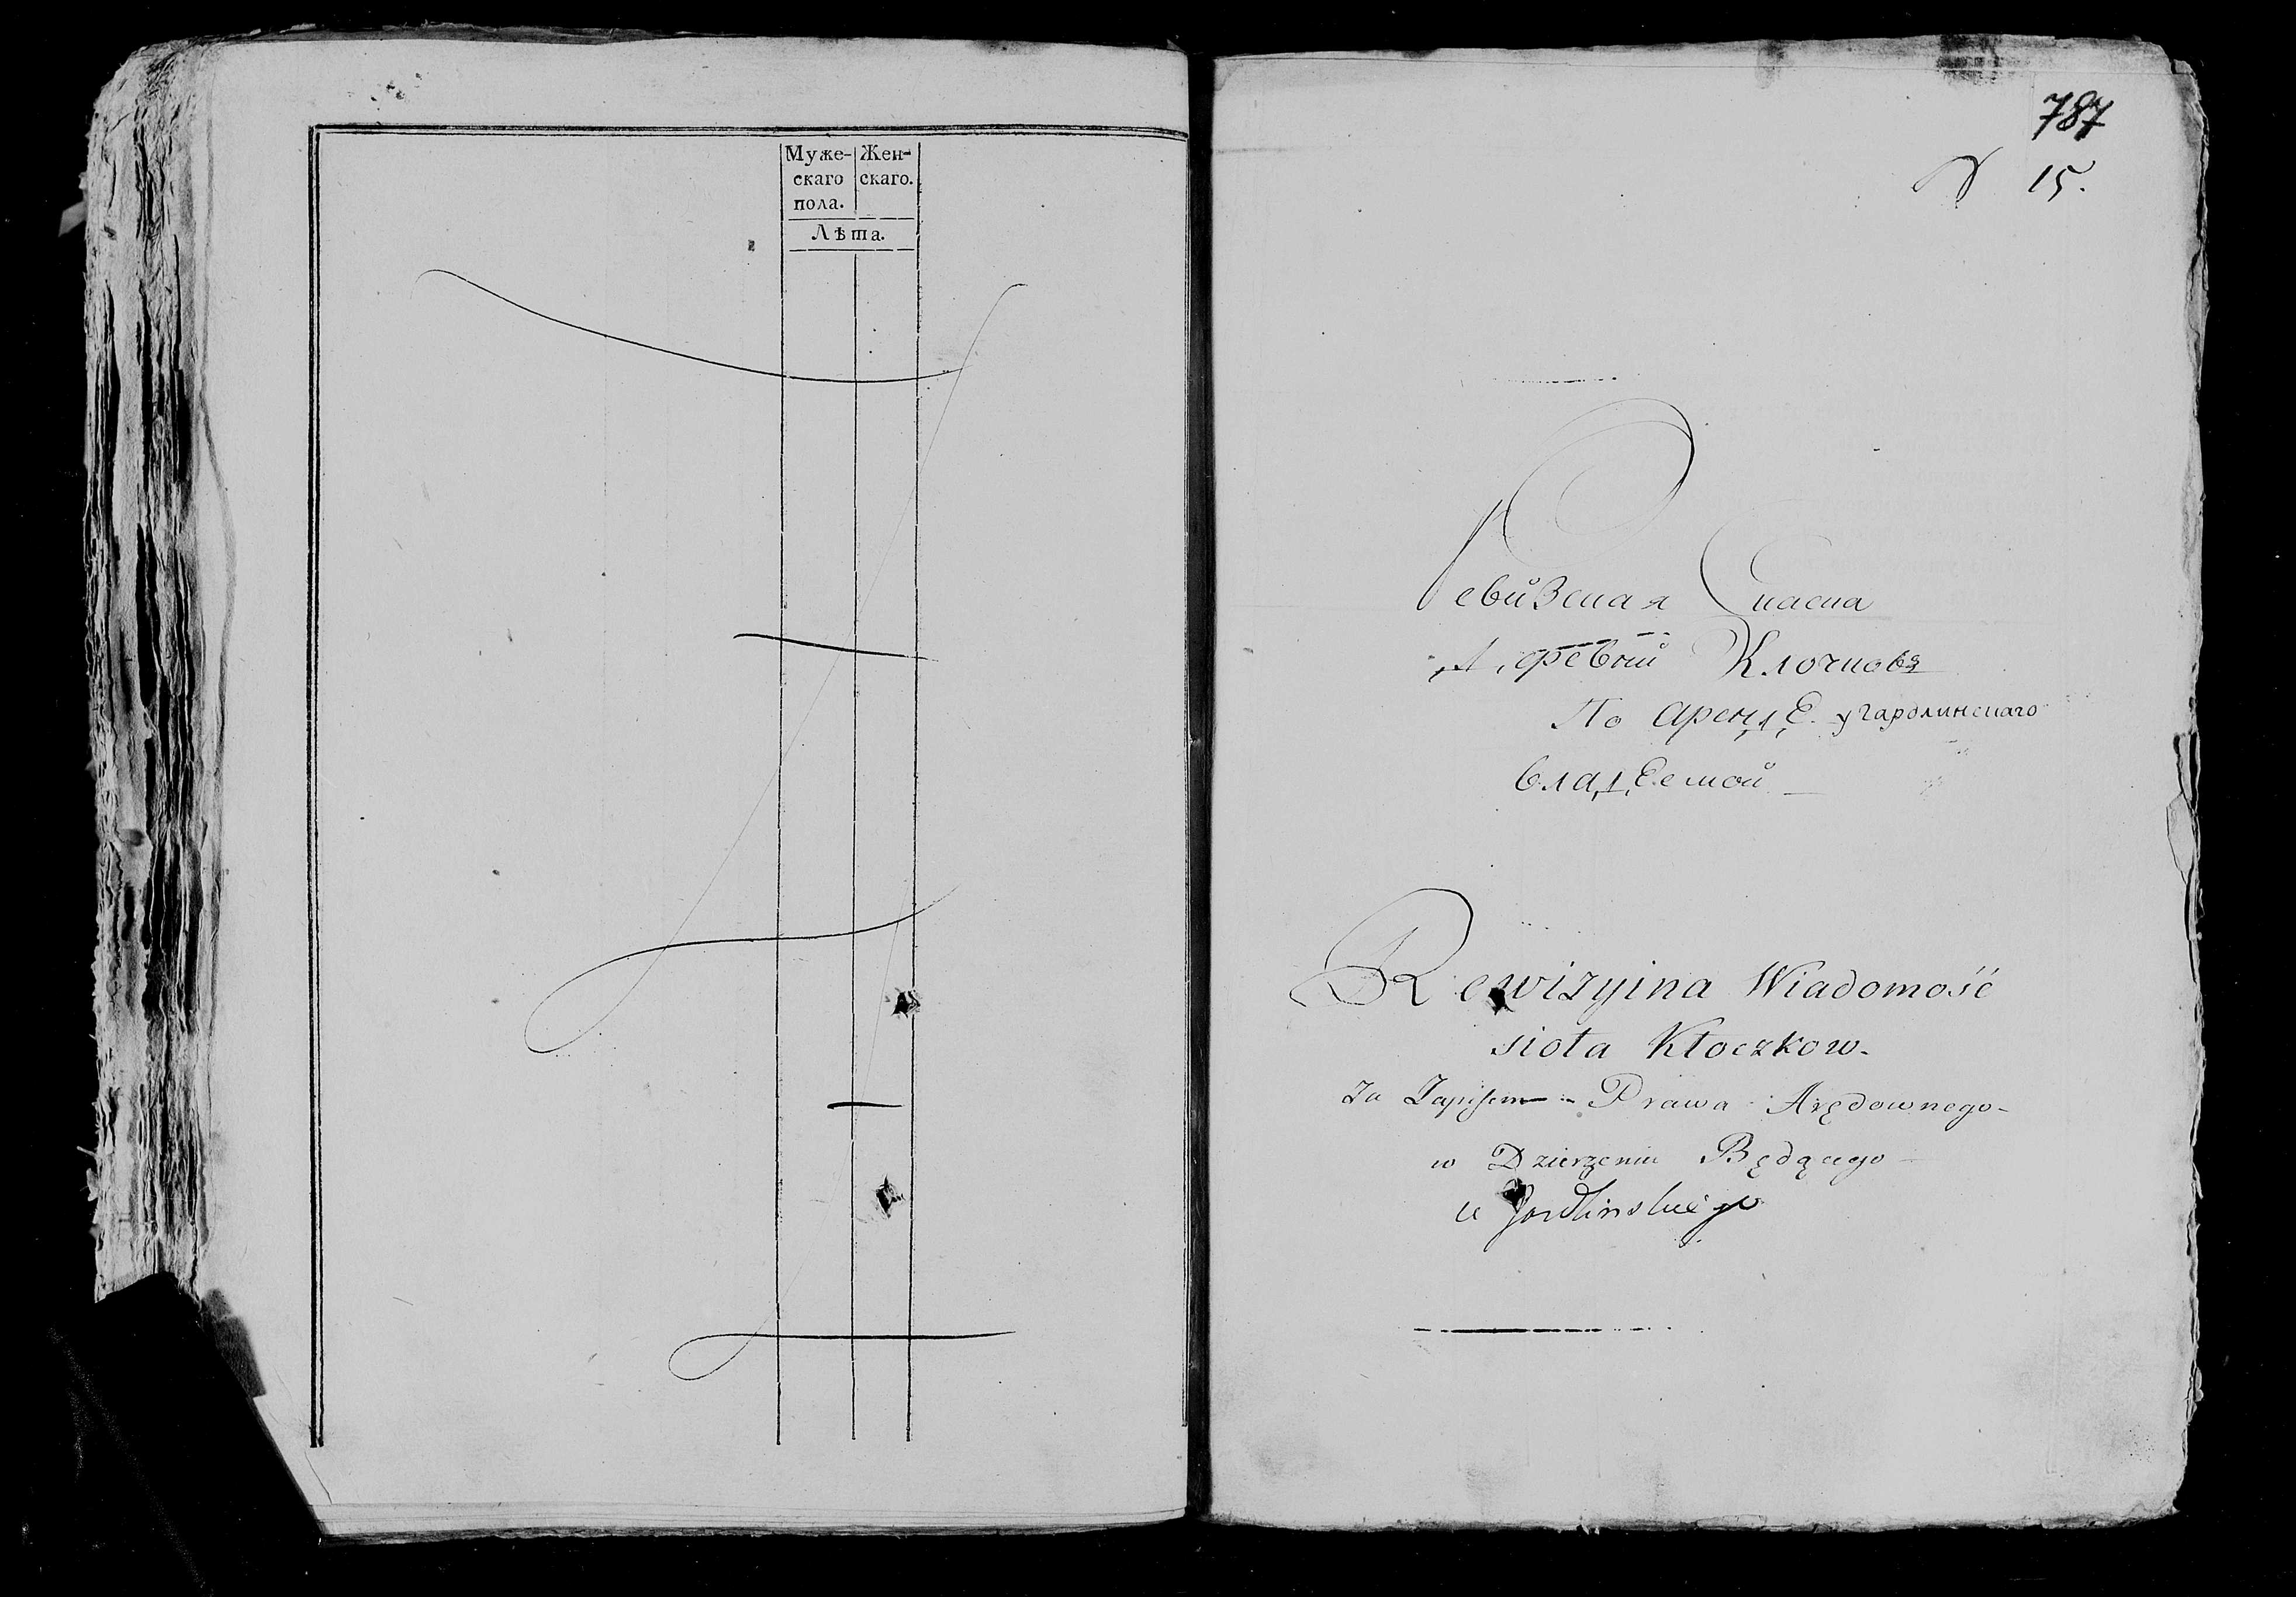 Муже- Жен-
скаго скаго.
пола.
Лѣта.
787
15.
Ревизская Скаска
Деревни Клочкова
По арендѣ у Гардлинскаго
владѣемой
Rewizyina Wiadomość
siota Kłoczkow.
za Zapisem Prawa Arędownego
w Dzierzeniu Będącego
u Jordlinskiego